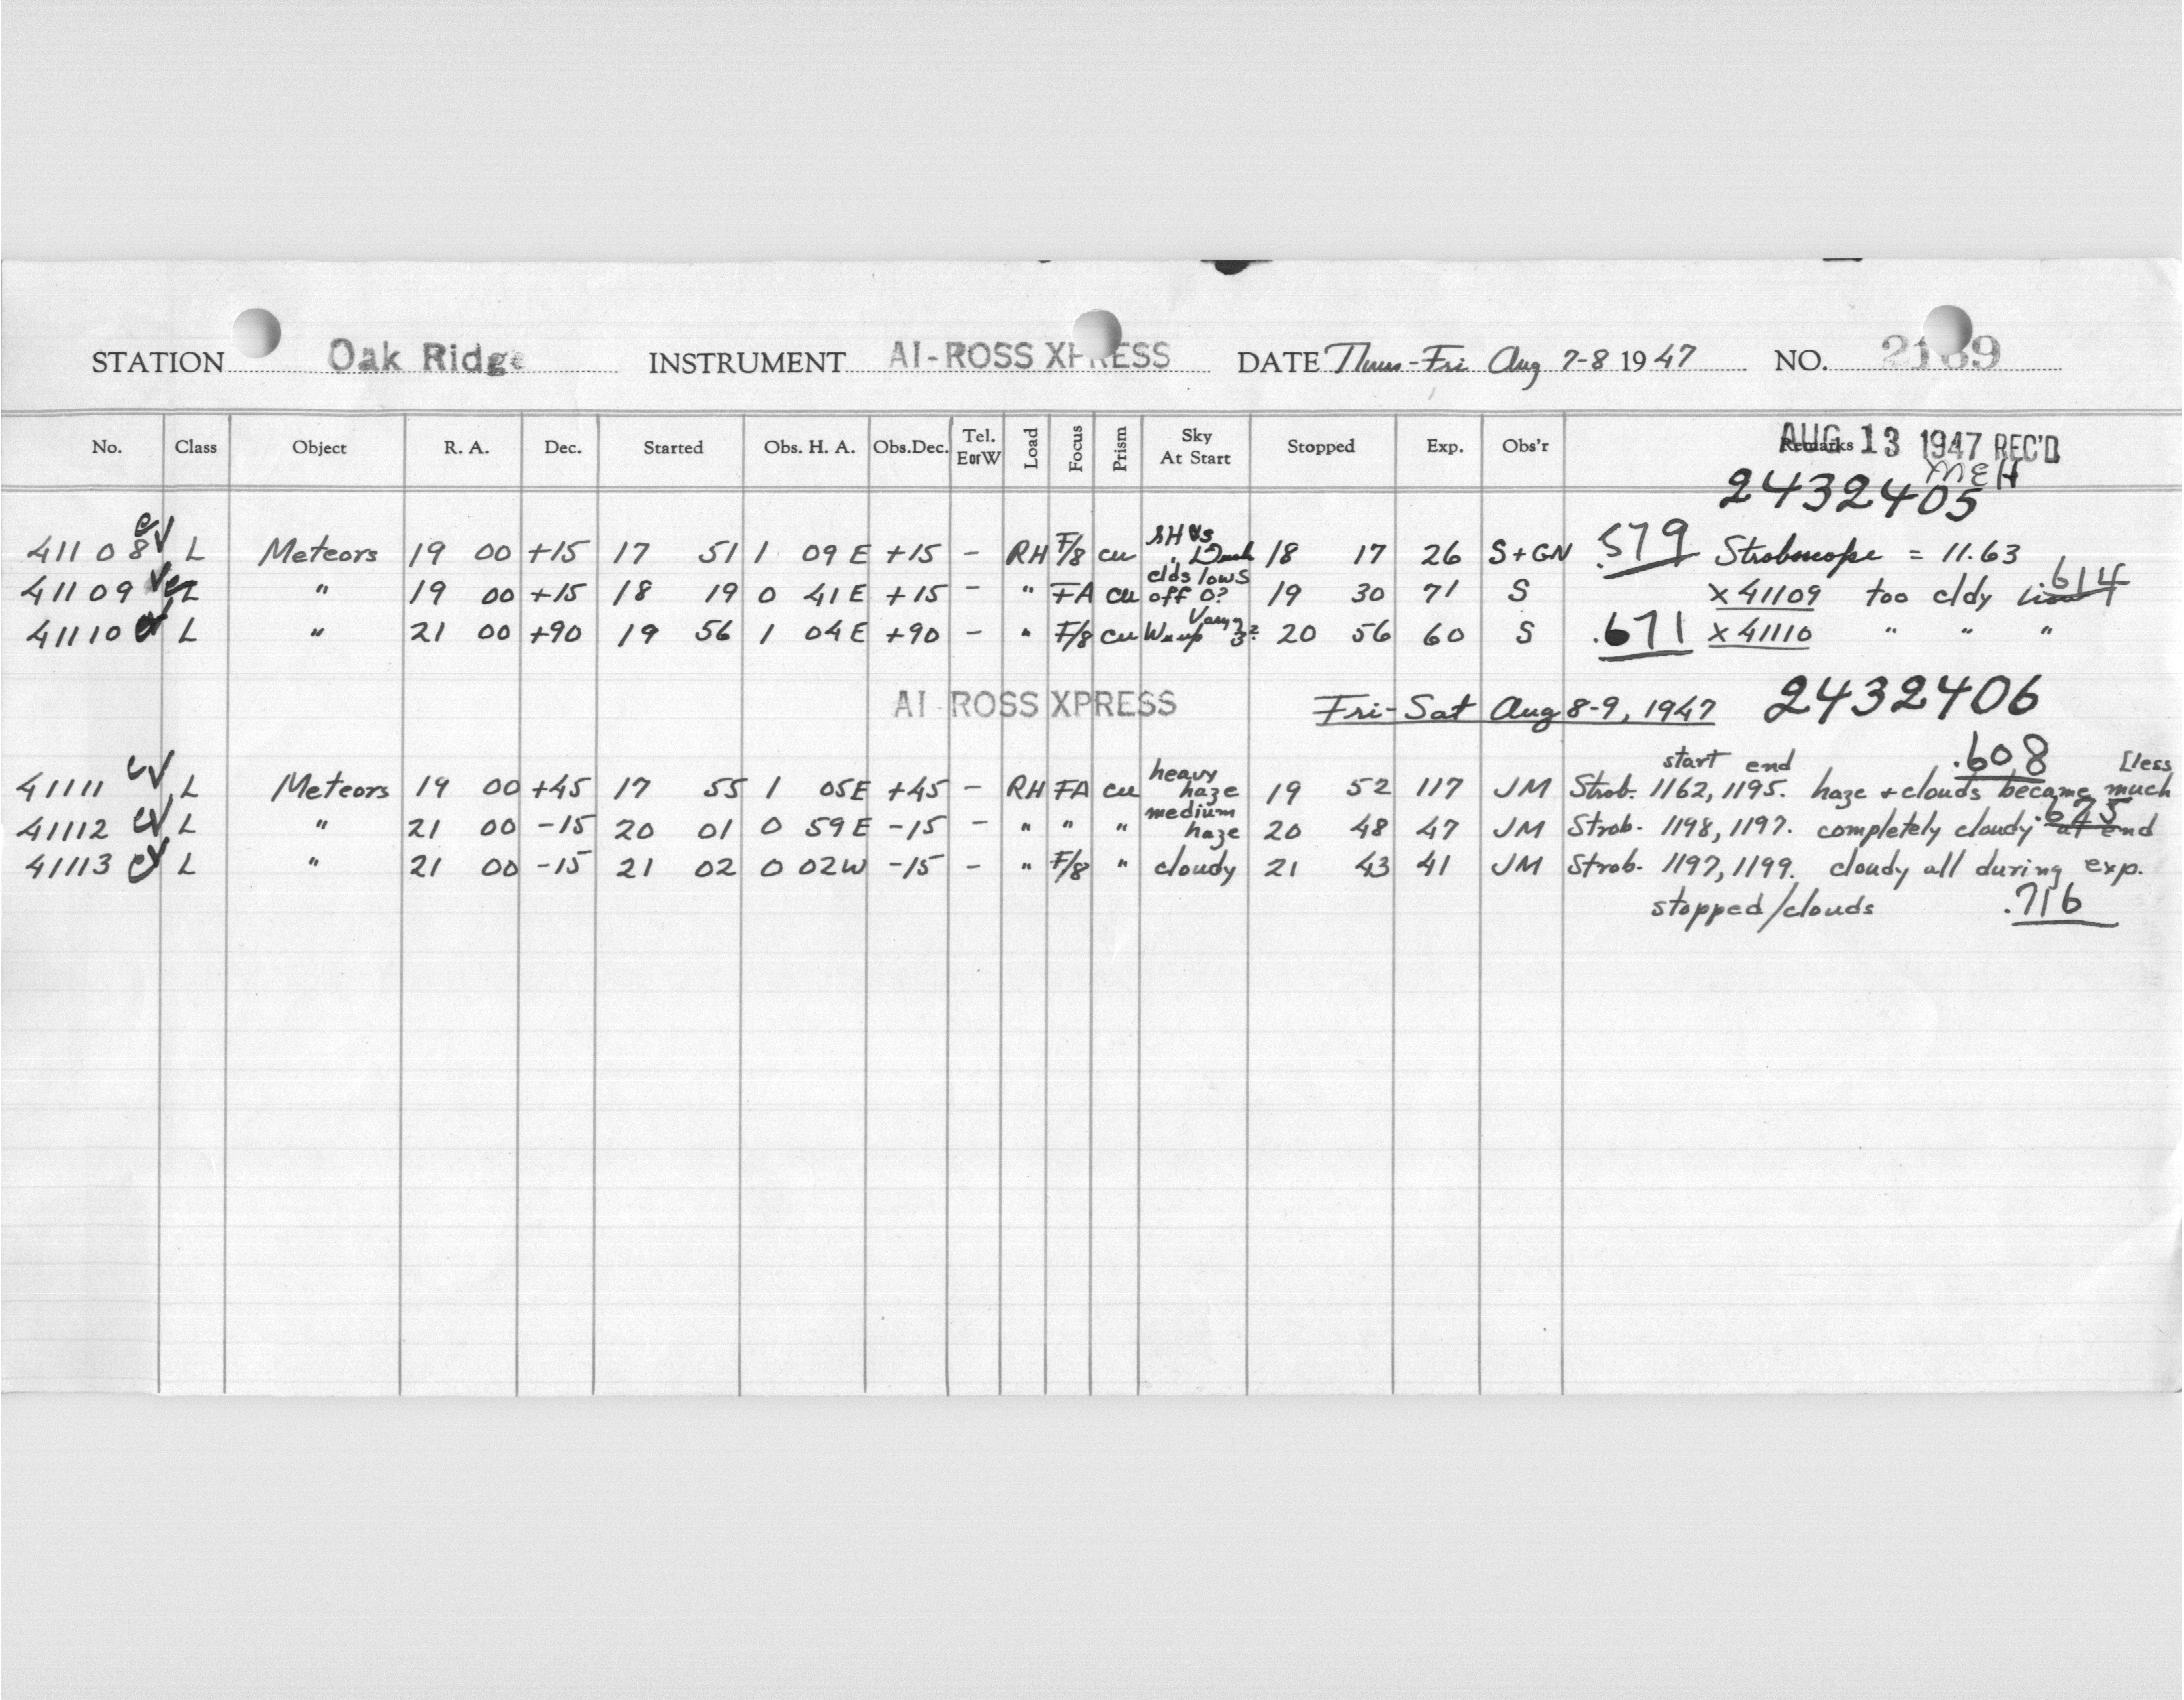 STATION Oak Ridge INSTRUMENT AI-ROSS XPRESS DATE Thurs-Fri Aug 7-8 1947 NO. 2189
No. Class Object R. A. Dec. Started Obs. H. A. Obs.Dec. Tel. EorW Load Focus Prism Sky At Start Stopped Exp. Obs'r Remarks AUG 13 1947 REC'D
MEH
2432405
41108 L Meteors 19 00 +15 17 51 1 09 E +15 - RH F/8 cu 18 17 26 S+GN .579 Stroboscope = 11.63
41109 L " 19 00 +15 18 19 0 41 E +15 - " FA cu clds low S off 0? 19 30 71 S x 41109 too cldy .614
41110 L " 21 00 +90 19 56 1 04 E +90 - " F/8 cu 20 56 60 S .671 x 41110 " " "
AI-ROSS XPRESS Fri-Sat Aug 8-9, 1947 2432406
start end .608 [less
41111 L Meteors 19 00 +45 17 55 1 05 E +45 - RH FA cu heavy haze 19 52 117 JM Strob. 1162, 1195. haze + clouds became much
41112 L " 21 00 -15 20 01 0 59 E -15 - " " " medium haze 20 48 47 JM Strob. 1198, 1197. completely cloudy at end .675
41113 L " 21 00 -15 21 02 0 02 W -15 - " F/8 " cloudy 21 43 41 JM Strob. 1197, 1199. cloudy all during exp.
stopped/clouds .716